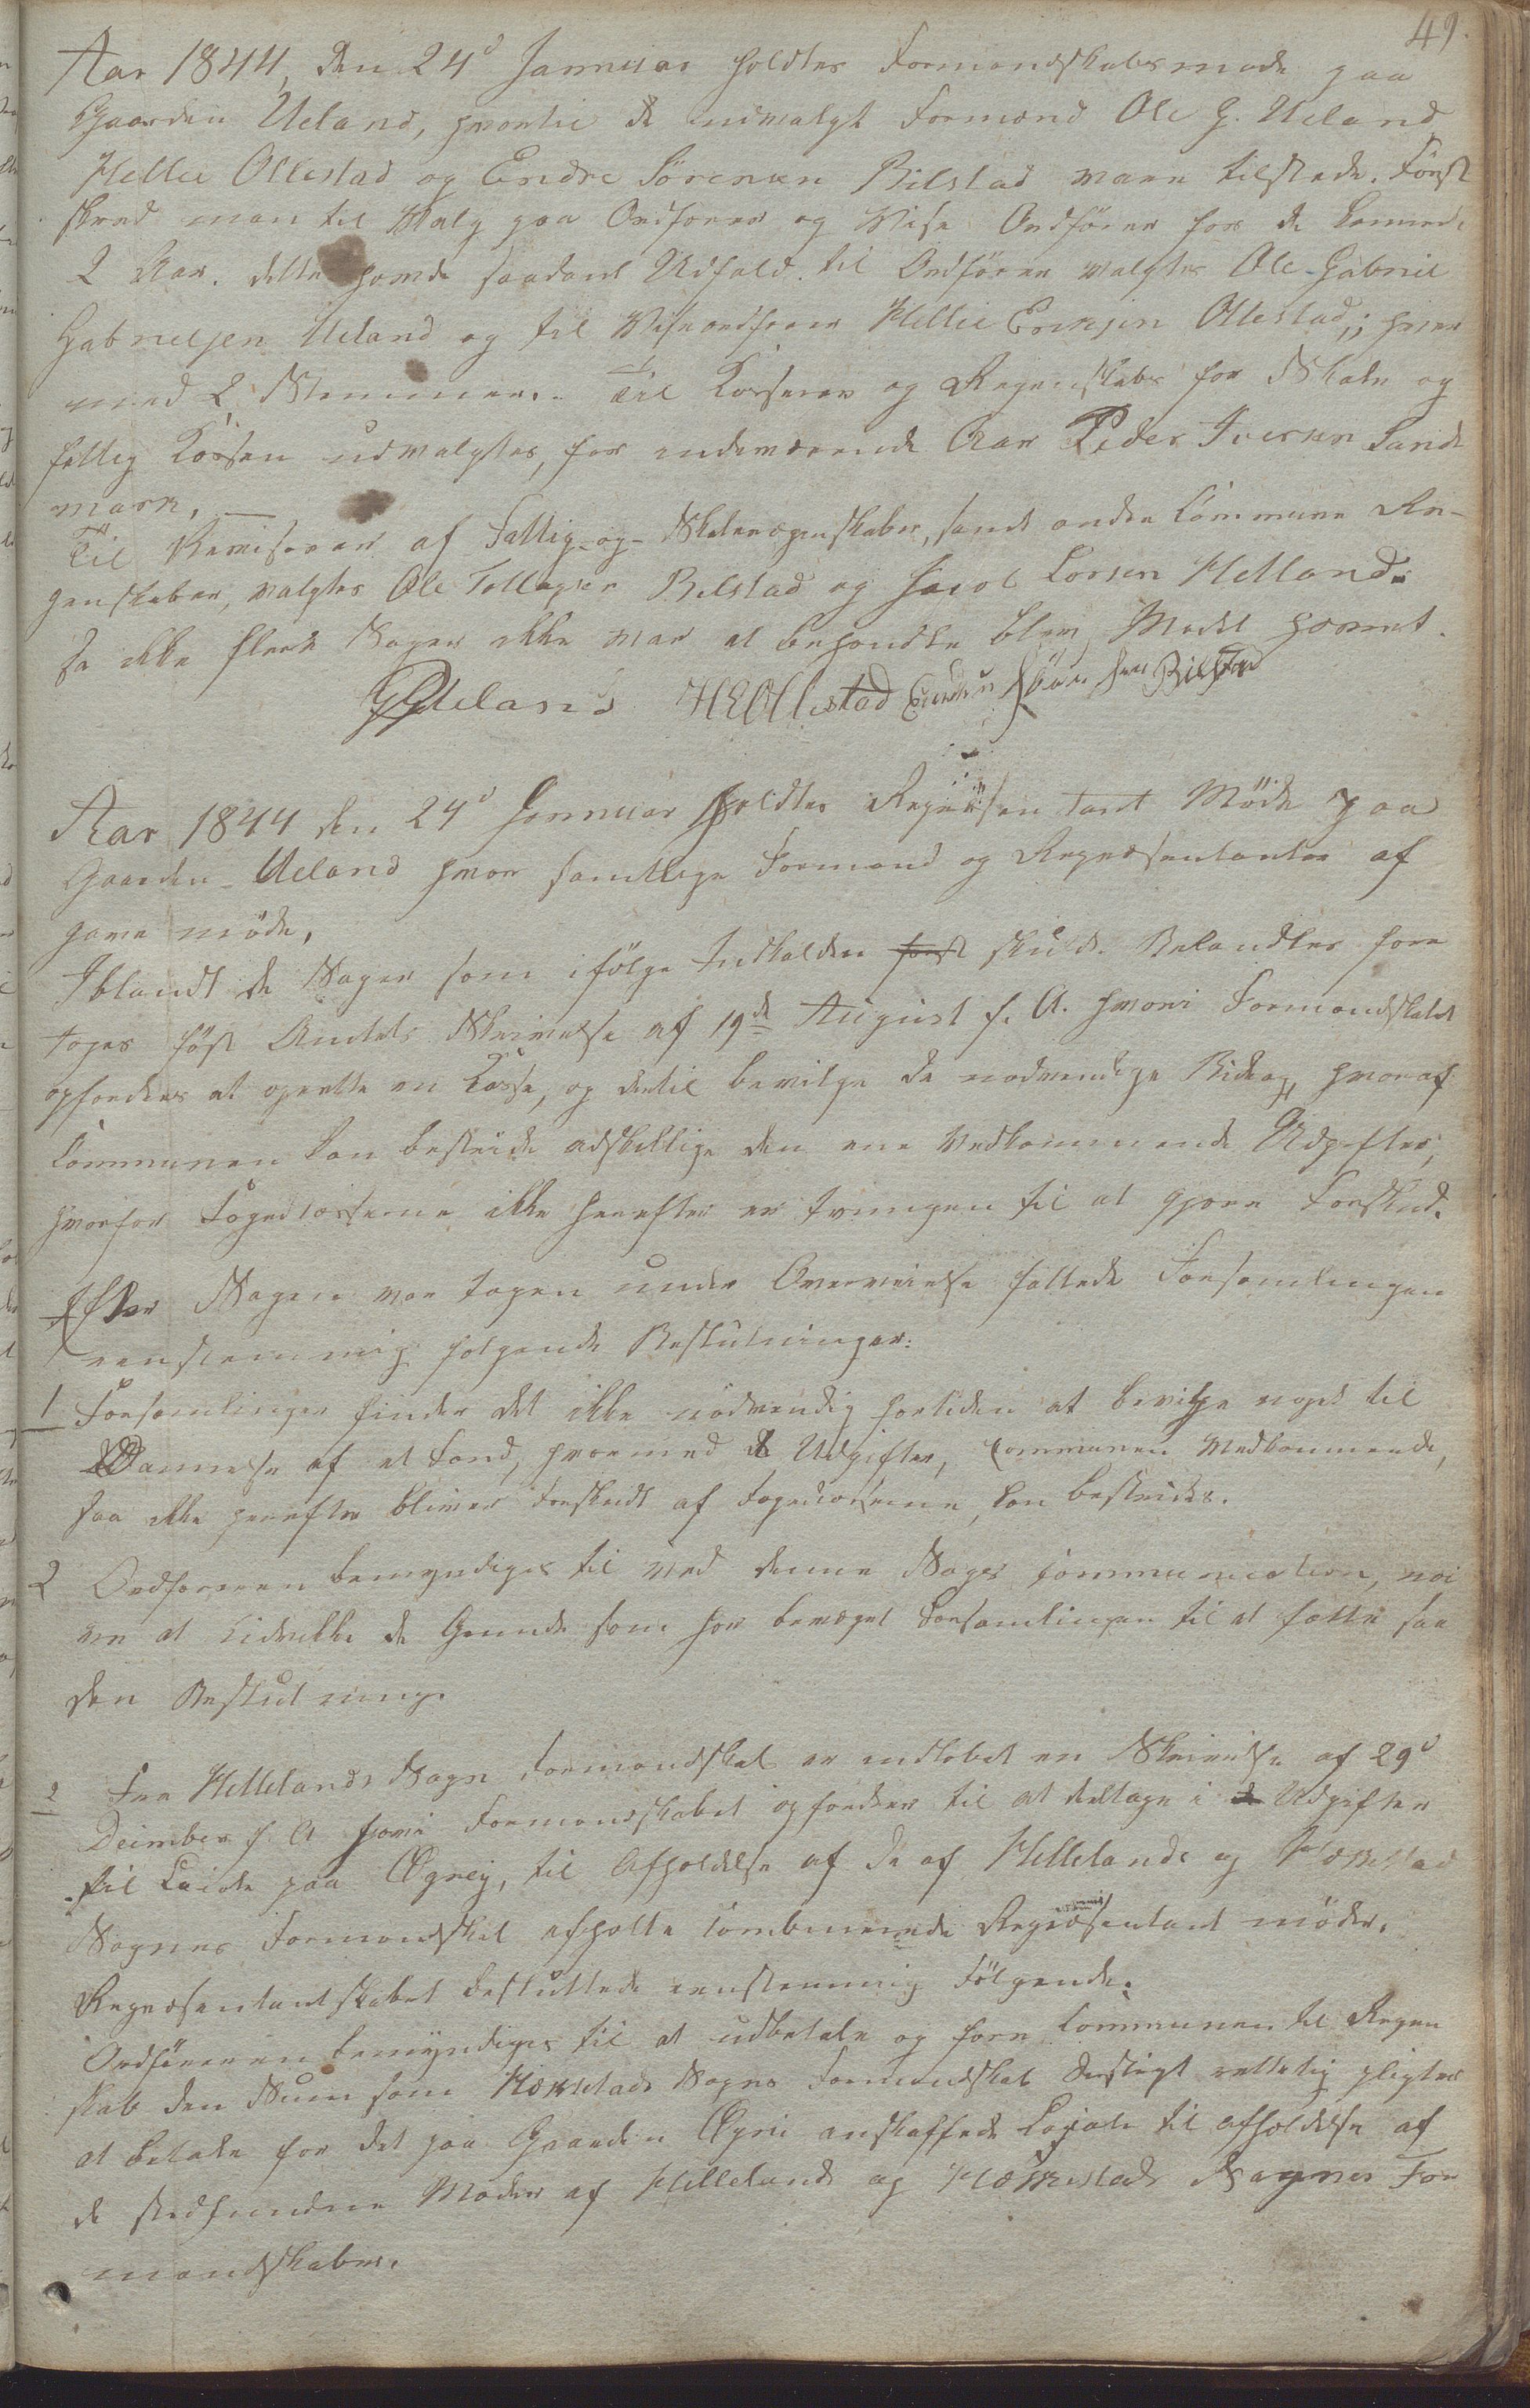 49.
Aar 1844, den 24d Januar holdtes Formandskabsmøde paa
Gaarden Ueland, hvortil de udvalgte Formænd Ole G. Ueland
Hellie Ollestad og Endre Sörensen Bilstad vare tilstede. Först
skred man til Valg paa Ordforer og Vise Ordförer for de kommende
2 Aar. dette havde saadant Udfald. til Ordförer valgtes Ole Gabriel
Gabrielsen Ueland og til Viseordforer Hellie Eriksen Ollestad; hver
med 2 Stemmer. Til Kasserer og Regenskabs for Skole og
fattig Kassen udvalgtes, for indeværende Aar Peder Iversen Sand
mark. —
Til Revisorer af Fattig-og-Skoleregenskaber, samt andre Commune Re-
genskaber, valgtes Ole Tollagsen Bilstad og Jacob Larsen Helland.
Da ikke flere Sager ikke var at behandle blev Mødet hævet.
GGUeland HEOllestad Endre Sörensen Bilstad
Aar 1844 den 24d Januar holdtes Repræsentant Möde paa
Gaarden Ueland hvor samtlige Formænd og Repræsentanter af
gave möde,
Iblandt de Sager som ifölge Indkaldelsen skulde Behandles fore
toges först Amtets Skrivelse af 19de August f. A. hvori Formandskabet
opfordres at oprette en Kasse, og dertil bevilge de nodvendige Bidrag, hvoraf
Communen kan bestride adskillige den ene Vedkommende Udgifter,
hvorfor Fogderierne ikke herefter er tvungen til at gjøre Forskud.
Efter Sagen var tagen under Overveielse fattede Forsamlingen
eenstemmig følgende Beslutninger:
1 Forsamlingen finder det ikke nödvendig fortiden at bevilge noget til
Dannelse af et Fond, hvormed de Udgifter, Communen Vedkommende,
saa ikke herefter bliver Forskudt af Fogderierne, kan bestrides.
2 Ordforeren bemyndiges til ved denne Sags Communication, nöi
ere at Udvikle de Grunde som har bevæget Forsamlingen til at fatte saa
dan Beslutning.
2 Fra Hellelands Sogn Formandskab er indlobet en Skrivelse af 29d
Decimber f. A hvori Formandskabet opfordrer til at deltage i Udgifter
til Leie paa Øgrey, til Afholdelse af de af Hellelands og Hæskestad
Sognes Formandskab afholte Combinerede Repræsentant möder.
Repræsentantskabet besluttede eenstemmig Fölgende:
Ordföreren bemyndiges til at udbetale og före Communen til Regen
skab den Sum som Hæskestads Sogns Formandskab retteligt pligter
at betale for det paa Gaarden Øgrei anskaffede Locale til afholdelse af
de stedfundne Møder af Hellelands og Hæskestads Sognes For
mandskaber.